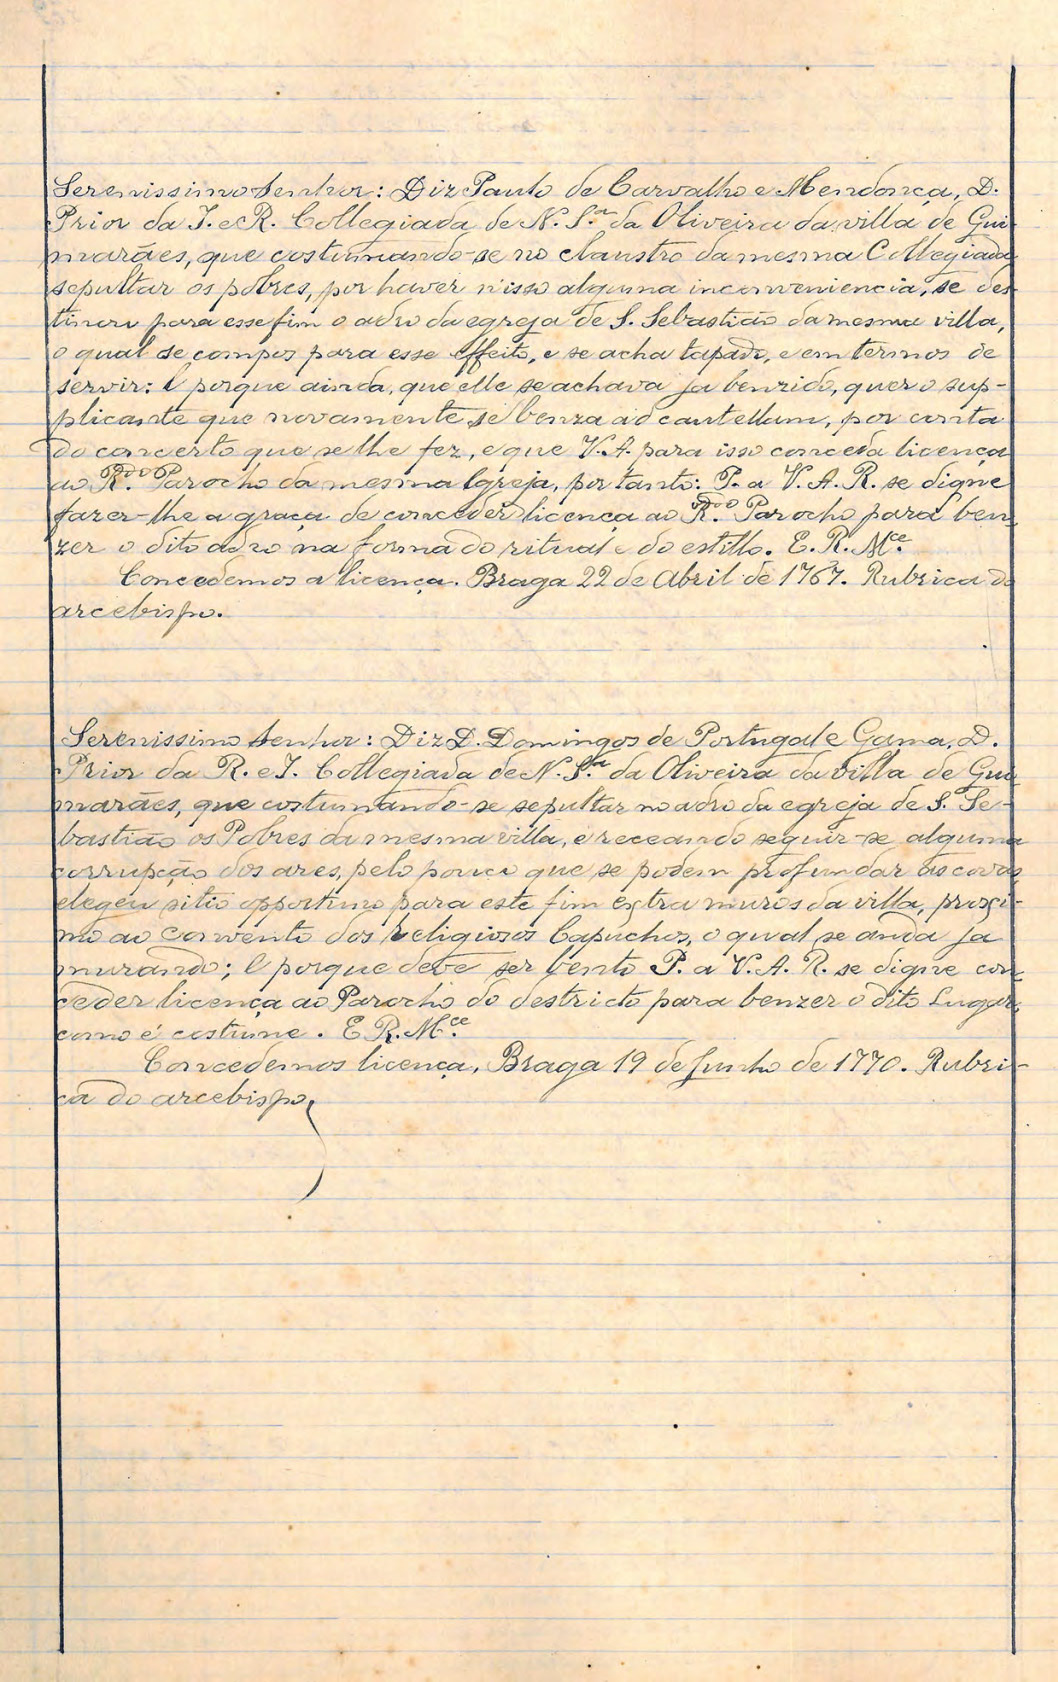 Serenissimo Senhor: Diz Paulo de Carvalho e Mendonça, D.
Prior da I. e R. Collegiada de N. S.ra da Oliveira da villa de Gui-
marães, que costumando-se no claustro da mesma Collegiada
sepultar os pobres, por haver n'isso alguma inconveniencia, se des-
tinou para esse fim o adro da egreja de S. Sebastião da mesma villa,
o qual se compos para esse effeito, e se acha tapado, e em termos de
servir: E porque ainda, que elle se achava ja benzido, quer o sup-
plicante que novamente se benza ad cautellam, por conta
do concerto que se lhe fez, e que V. A. para isso conceda licença
ao R.do Parocho da mesma Igreja, por tanto: P. a V. A. R. se digne
fazer-lhe a graça de conceder licença ao R.do Parocho para ben-
zer o dito adro na forma do ritual e do estillo. E. R. M.ce
Concedemos a licença. Braga 22 de Abril de 1767. Rubrica do
arcebispo.
Serenissimo Senhor: Diz D. Domingos de Portugal e Gama, D.
Prior da R. e I. Collegiada de N. S.ra da Oliveira da villa de Gui-
marães, que costumando-se sepultar no adro da egreja de S. Se-
bastião os Pobres da mesma villa, e receando seguir-se alguma
corrupção dos ares, pelo pouco que se podem profundar as covas
elegeu sitio opportuno para este fim extra muros da villa, proxi-
mo ao convento dos religiosos Capuchos, o qual se anda ja
murando; E porque deve ser bento P. a V. A. R. se digne con-
ceder licença ao Parocho do destricto para benzer o dito Lugar,
como é costume. E R. M.ce
Concedemos licença, Braga 19 de Junho de 1770. Rubri-
ca do arcebispo,